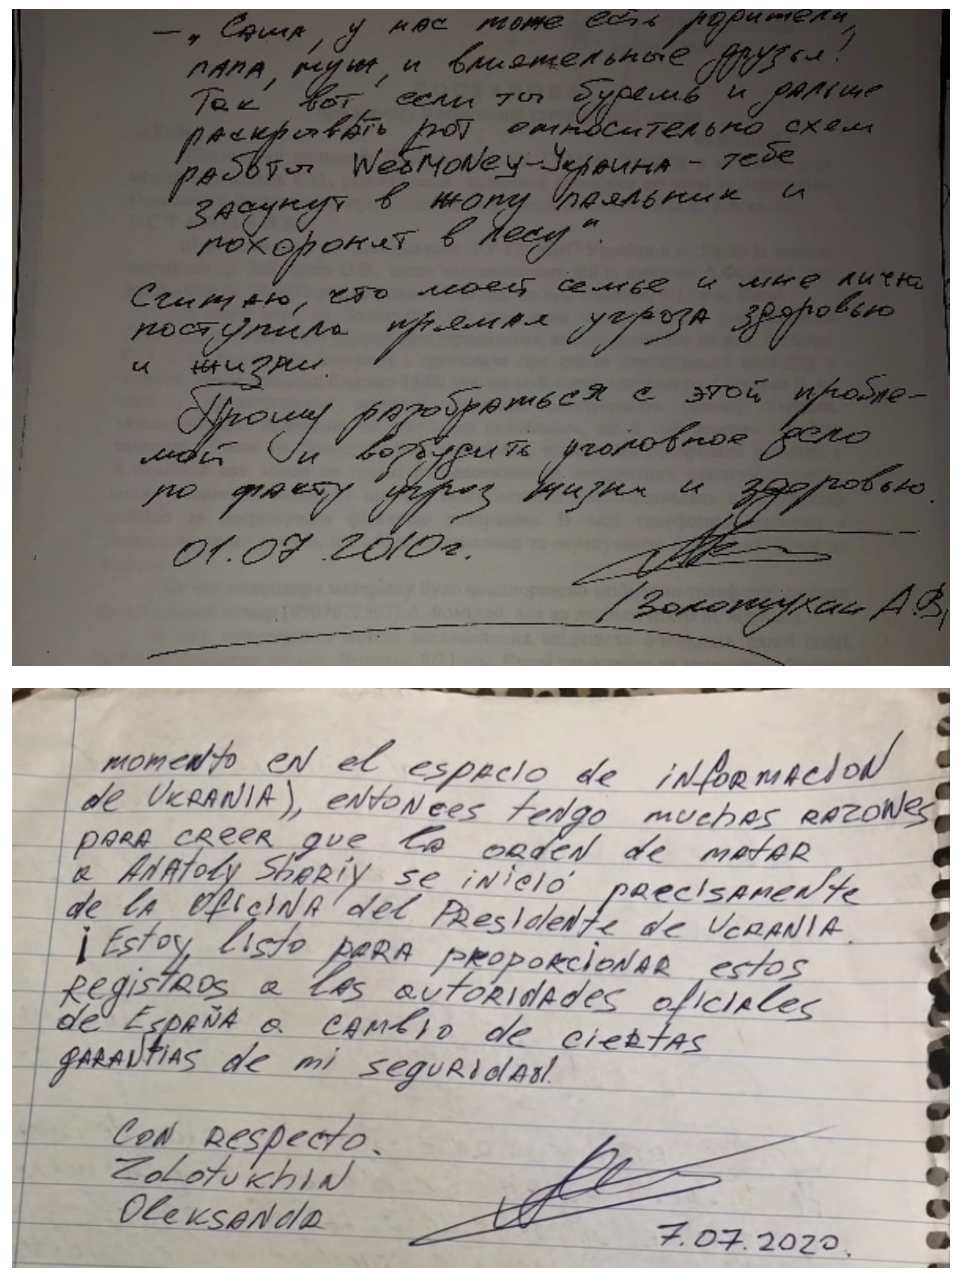 — „Саша, у нас тоже есть родители,
папа, муж, и влиятельные друзья!
Так вот, если ты будешь и дальше
раскрывать рот относительно схем
работы WebMoney-Украина - тебе
засунут в жопу паяльник и
похоронят в лесу“.
Считаю, что моей семье и мне лично
поступила прямая угроза здоровью
и жизни.
Прошу разобраться с этой пробле-
мой и возбудить уголовное дело
по факту угроз жизни и здоровью.
01.07.2010г.
/Золотухин А.В.
momento en el espacio de informacion
de Ukrania), entonces tengo muchas razones
para creer que la orden de matar
a Anatoly Shariy se inició precisamente
de la oficina del Presidente de Ucrania.
¡Estoy listo para proporcionar estos
registros a las autoridades oficiales
de España a cambio de ciertas
garantias de mi seguridad!
Con respecto.
Zolotukhin
Oleksandr
7.07.2020.